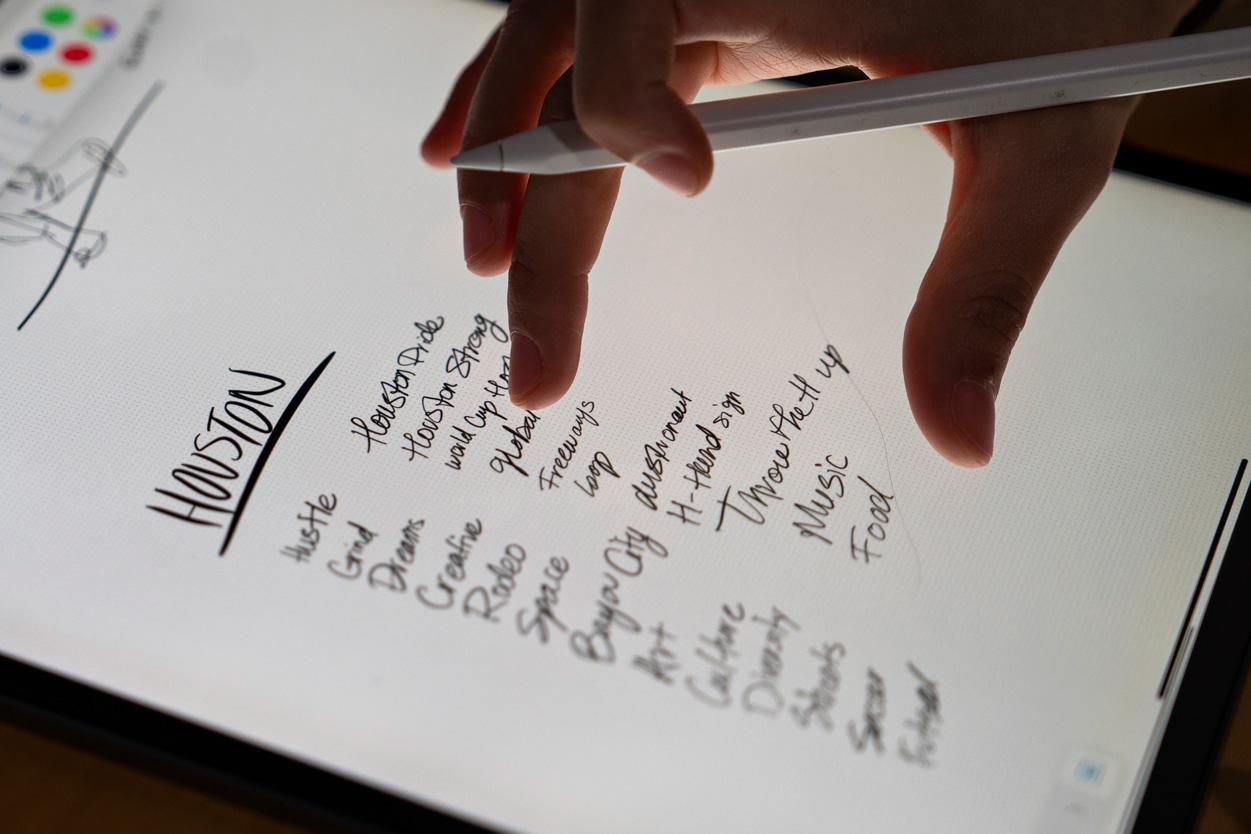 HOUSTON
Hustle
Grind
Dreams
Creative
Rodeo
Space
Bayou City
Art
Culture
Diversity
Streets
Soccer
Houston Pride
Houston Strong
world Cup
global
Freeways
Loop
austronaut
H-Hand sign
Throw the H up
Music
Food